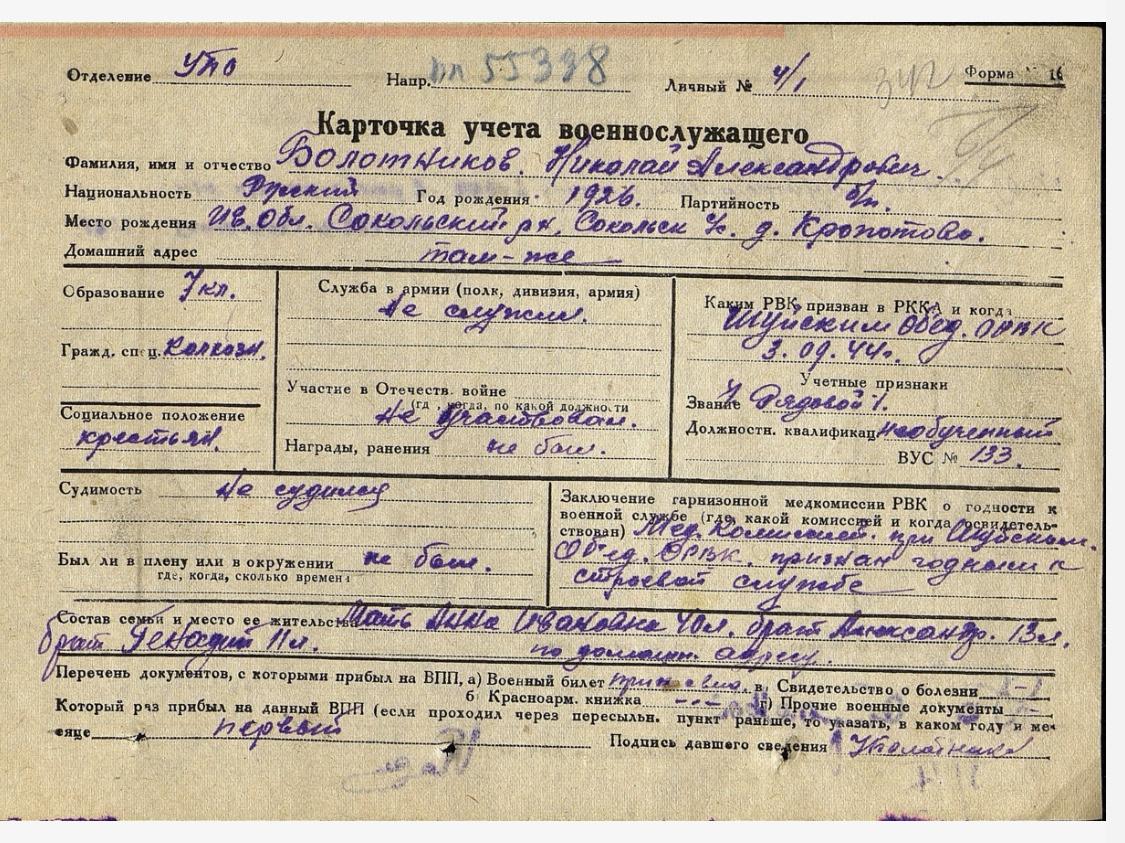 Отделение УПО Напр. пп 55398 Личный № 4/1 342 Форма 16
Карточка учета военнослужащего
Фамилия, имя и отчество Болотников. Николай Александрович.
Национальность Русский Год рождения 1926. Партийность б/п.
Место рождения Ив. Обл. Сокольский рн, Сокольск д. Кропотово.
Домашний адрес там-же
Образование 7 кл.
Гражд. спец. Колхозн.
Социальное положение
крестьян.
Служба в армии (полк, дивизия, армия)
Не служил.
Участие в Отечеств. войне
(где, когда, по какой должности
Не участвовал.
Награды, ранения не был.
Каким РВК призван в РККА и когда
Шуйским Обед. ОРВК
3.09.44 г.
Учетные признаки
Звание Рядовой
Должностн. квалификац. Необученный
ВУС № 133.
Судимость Не судился
Был ли в плену или в окружении не был.
где, когда, сколько времени
Заключение гарнизонной медкомиссии РВК о годности к
военной службе (где, какой комиссией и когда освидетель-
ствован) Мед. Комиссией. при Шуйском.
Об'ед. ОРВК. признан годным к
строевой службе
Состав семьи и место ее жительства Мать Анна Ивановна 40 л. брат Александр. 13 л.
брат Генадий 11 л. по домашн. адресу.
Перечень документов, с которыми прибыл на ВПП, а) Военный билет в) Свидетельство о болезни
б) Красноарм. книжка г) Прочие военные документы
Который раз прибыл на данный ВПП (если проходил через пересыльн. пункт раньше, то указать, в каком году и ме-
сяце первый
Подпись давшего сведения